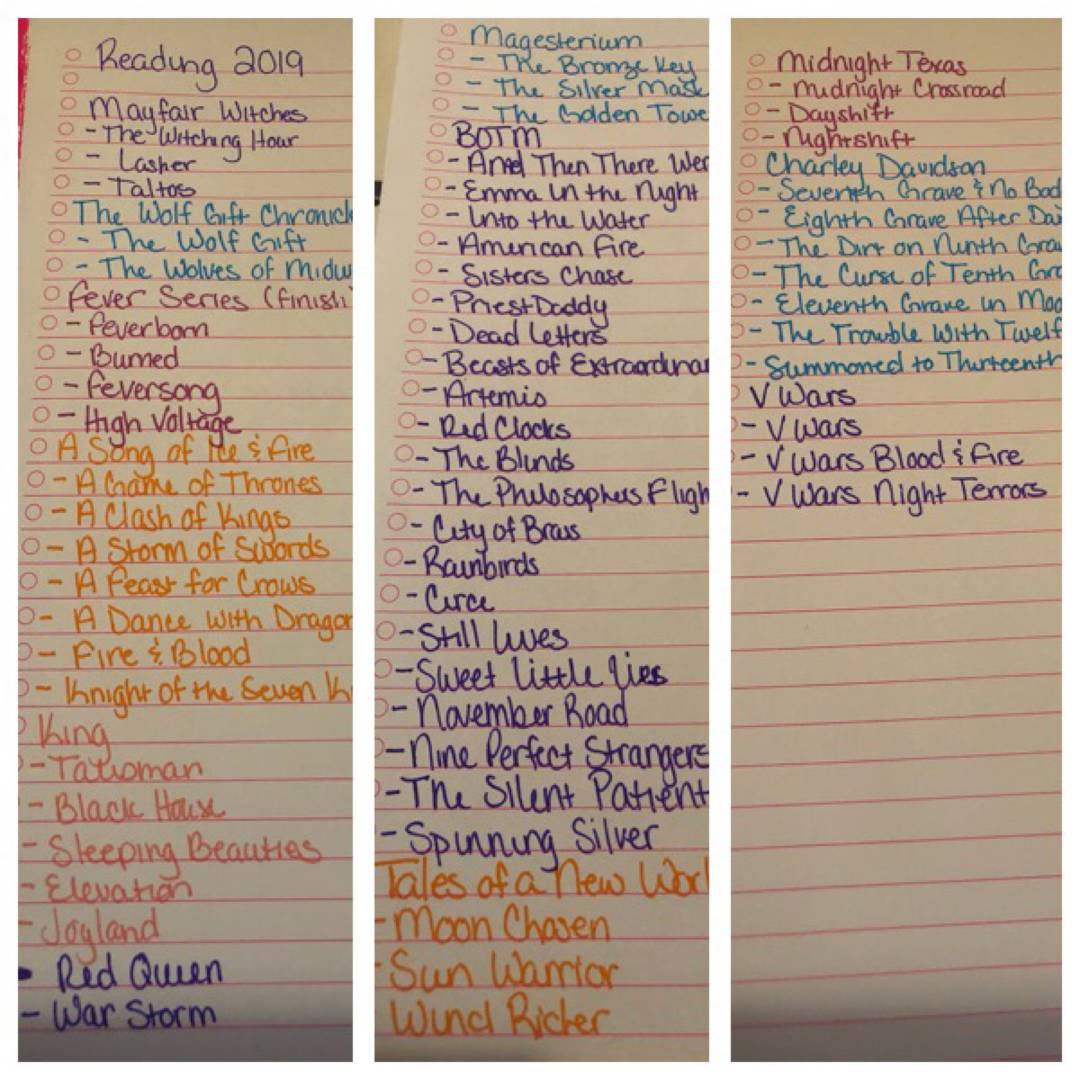 Reading 2019
Mayfair Witches
- The Witching Hour
- Lasher
- Taltos
The Wolf Gift Chronicl
- The Wolf Gift
- The Wolves of Midw
Fever Series (finishi
- Feverborn
- Burned
- Feversong
- High Voltage
A Song of Ice & Fire
- A Game of Thrones
- A Clash of Kings
- A Storm of Swords
- A Feast for Crows
- A Dance with Dragon
- Fire & Blood
- Knight of the Seven K
King
- Talisman
- Black House
- Sleeping Beauties
- Elevation
- Joyland
- Red Queen
- War Storm
Magesterium
- The Bronze Key
- The Silver Mask
- The Golden Towe
BOTM
- And Then There Wer
- Emma in the Night
- Into the Water
- American Fire
- Sisters Chase
- PriestDaddy
- Dead Letters
- Beasts of Extraordinar
- Artemis
- Red Clocks
- The Blinds
- The Philosophers Fligh
- City of Brass
- Rainbirds
- Circe
- Still Lives
- Sweet Little Lies
- November Road
- Nine Perfect Strangers
- The Silent Patient
- Spinning Silver
Tales of a New Worl
- Moon Chosen
- Sun Warrior
Wind Rider
Midnight Texas
- Midnight Crossroad
- Dayshift
- Nightshift
Charley Davidson
- Seventh Grave & No Bod
- Eighth Grave After Da
- The Dirt on Ninth Gra
- The Curse of Tenth Gra
- Eleventh Grave in Moo
- The Trouble With Twelf
- Summoned to Thirteenth
V Wars
- V Wars
- V Wars Blood & Fire
- V Wars Night Terrors